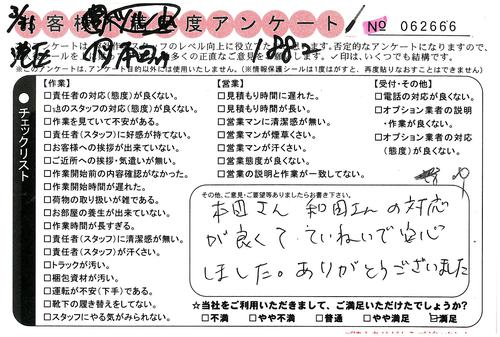 客様満足度アンケート
No 062666
ンケートは
スタッフのレベル向上に役立
す。否定的なアンケートになりますので、
多くの直正なご意見を
します。✓印は、いくつでも結構です。
※このアンケートは、アンケート目的以外には使用いたしません。(※情報保護シールは1度はがすと、再度貼りなおすことはできません)
●チェックリスト
【作業】
□責任者の対応(態度)が良くない。
□他のスタッフの対応(態度)が良くない。
□作業を見ていて不安がある。
□責任者(スタッフ)に好感が持てない。
□お客様への挨拶が出来ていない。
□ご近所への挨拶・気遣いが無い。
□作業開始前の内容確認がなかった。
□作業開始時間が遅れた。
□荷物の取り扱いが雑である。
□お部屋の養生が出来ていない。
□作業時間が長すぎる。
□責任者(スタッフ)に清潔感が無い。
□責任者(スタッフ)が汗くさい。
□トラックが汚い。
□梱包資材が汚い。
□運転が不安(下手)である。
□靴下の履き替えをしてない。
□スタッフにやる気がみられない。
【営業】
□見積もり時間に遅れた。
□見積もり時間が長い。
□営業マンに清潔感が無い。
□営業マンが煙草くさい。
□営業マンが汗くさい。
□営業態度が良くない。
□営業の説明と作業が一致してない。
【受付・その他】
□電話の対応が良くない。
□オプション業者の説明
・作業が良くない。
□オプション業者の対応
(態度)が良くない。
その他、ご意見・ご要望等ありましたらお書き下さい。
本田さん 和田さんの対応
が良くて、ていねいで安心
しました。ありがとうございました
☆当社をご利用いただきまして、ご満足いただけたでしょうか?
□不満 □やや不満 □普通 □やや満足 ☑満足